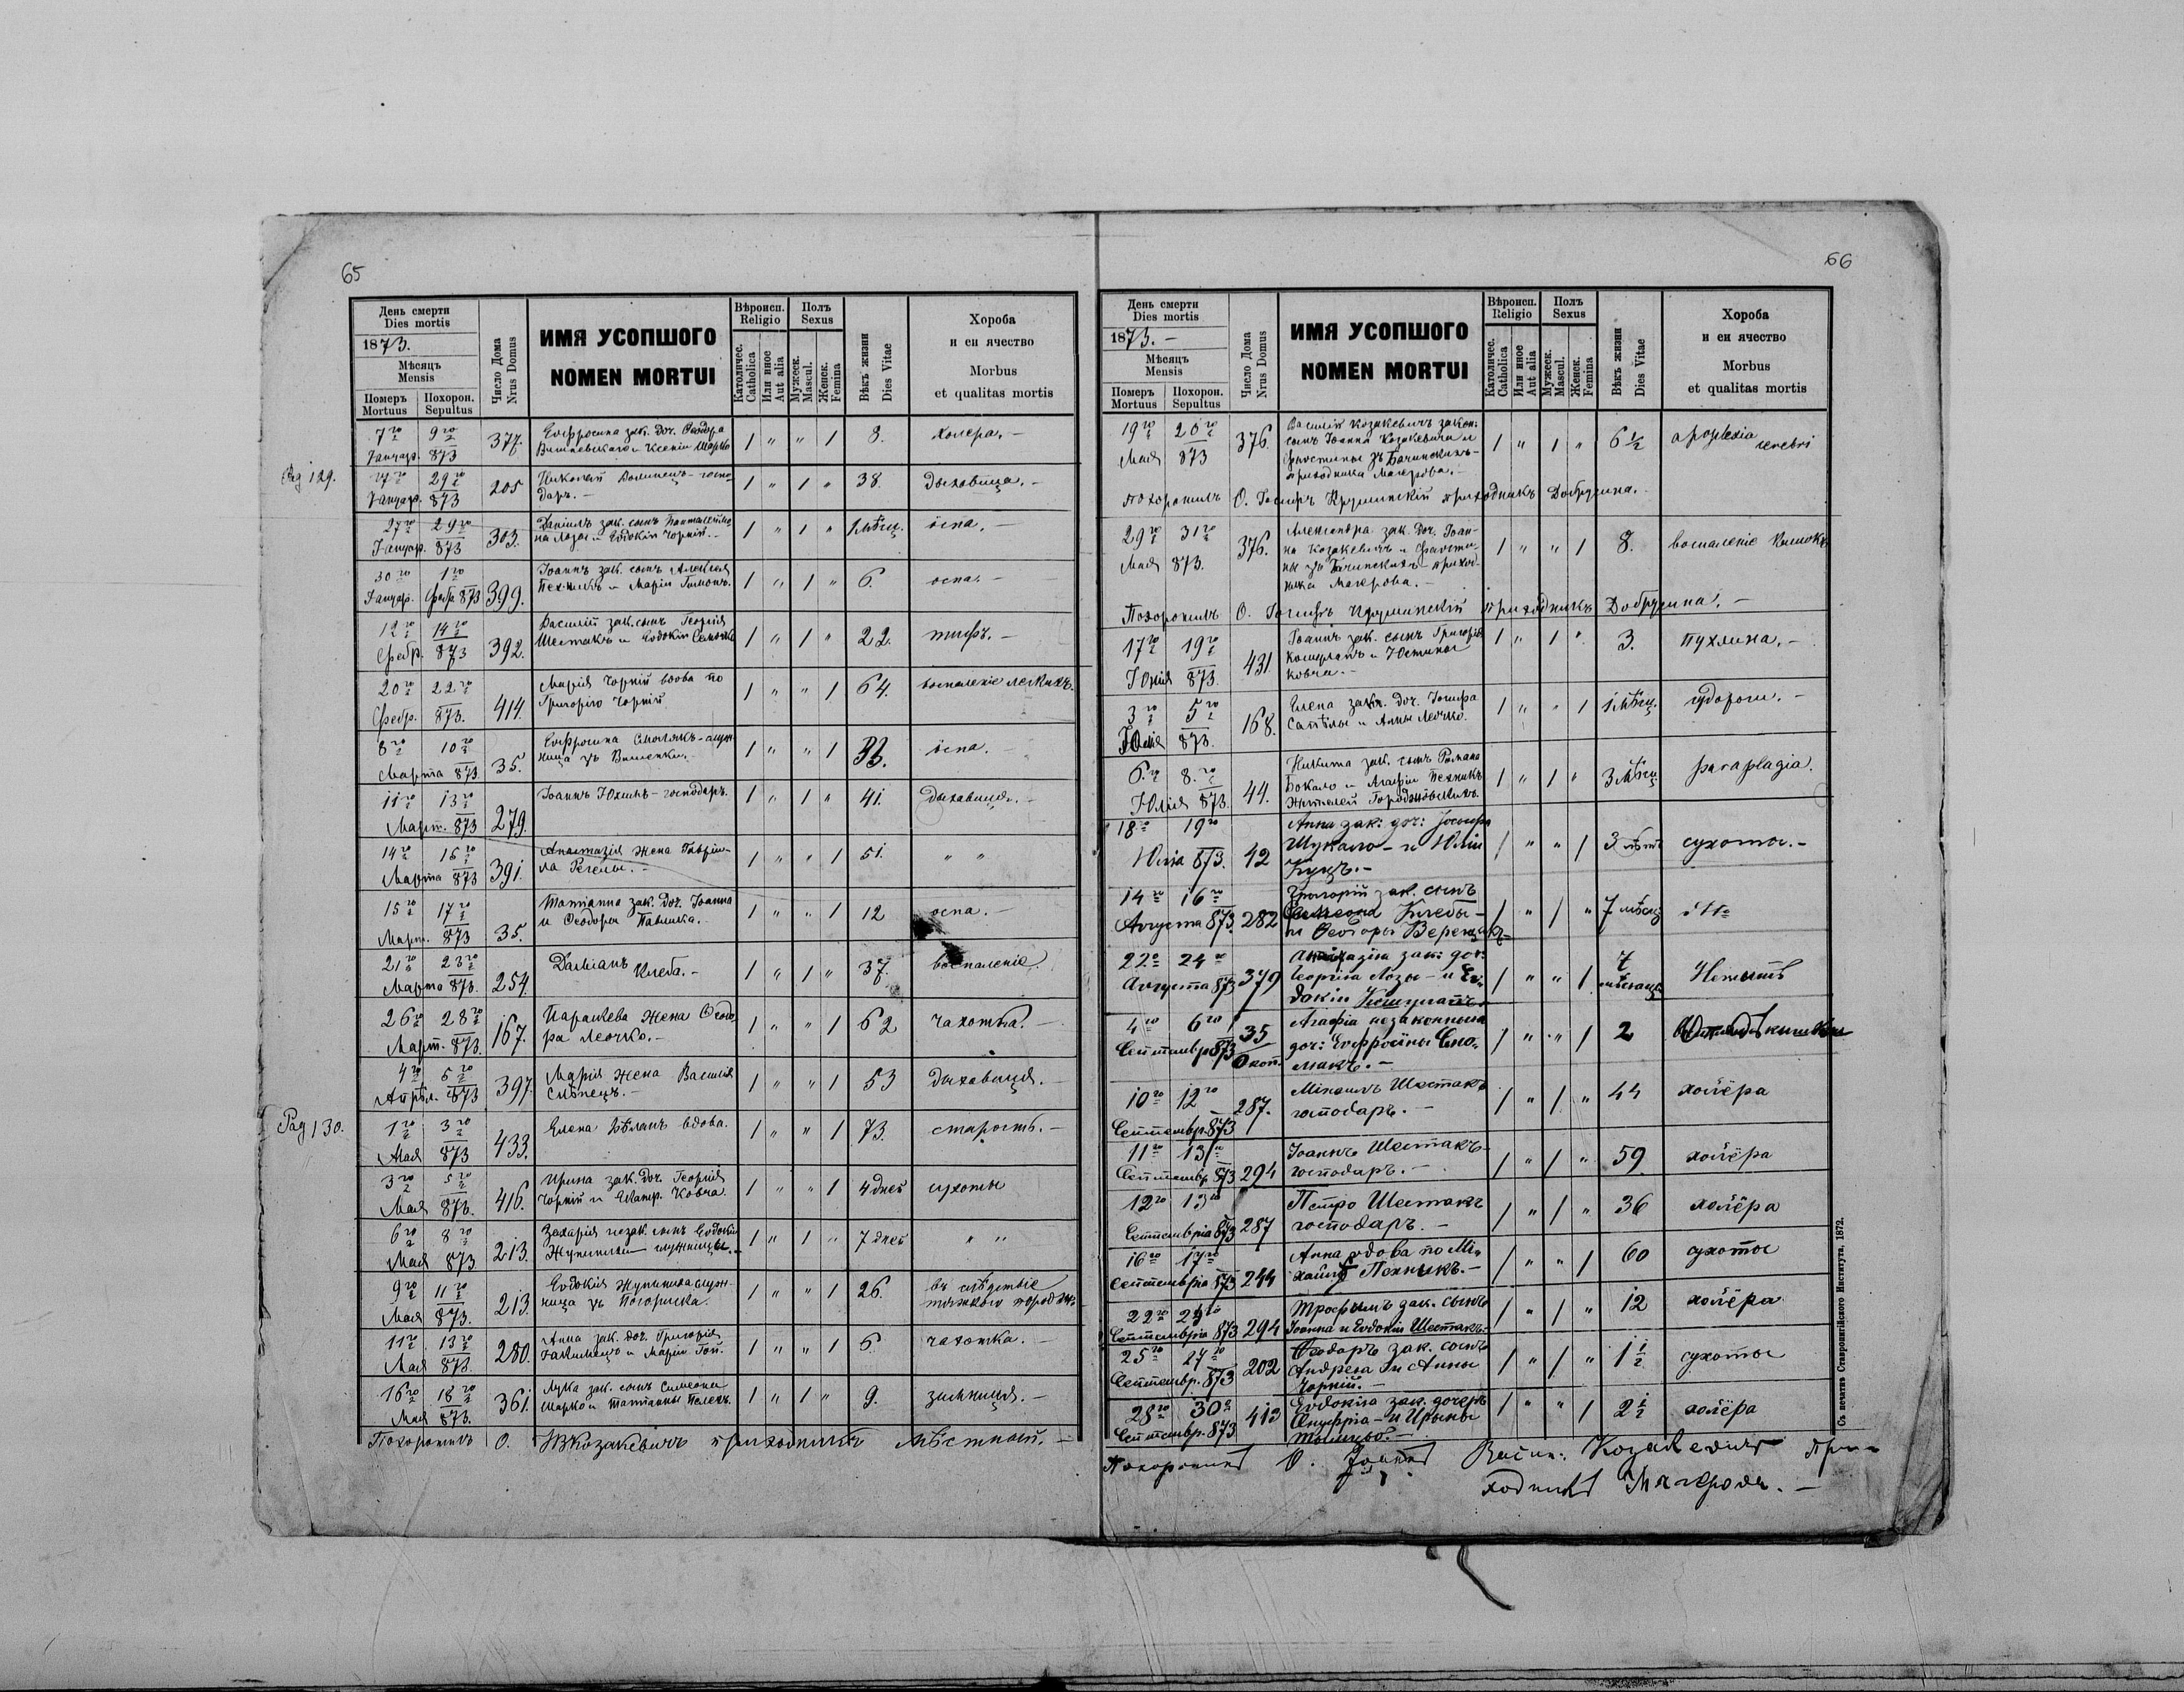 65
День смерти
Dies mortis
1873.
Мѣсяцъ
Mensis
Померъ Похорон.
Mortuus Sepultus
Число Дома
Nrus Domus
ИМЯ УСОПШОГО
NOMEN MORTUI
Вѣроисп.
Religio
Католичес.
Catholica
Или иное
Aut alia
Полъ
Sexus
Мужеск.
Mascul.
Женск.
Femina
Вѣкъ жизни
Dies Vitae
Хороба
и еи ячество
Morbus
et qualitas mortis
7го 9го Евфросина зак. доч. Ѳеодора
Януар. 873 377. Вишневского и Ксеніи Шарко 1 " " 1 8. холера. –
Pag 129.
29го Николай Долинецъ – госпо-
Януар. 873 205 даръ. – 1 " 1 " 38. дыхавица. –
27го 29го Даніилъ зак. сынъ Панталеймо-
Януар. 873 303. на Лозы и Евдокіи Чорній. – 1 " 1 " 1 мѣсц. оспа. –
30го 1го Іоаннъ зак. сынъ Алексея
Януар. Фебр. 873 399. Пехникъ и Маріи Гимонъ. 1 " 1 " 6. оспа. –
12го 14го Василій зак. сынъ Георгія
Фебр. 873 392. Шестакъ и Евдокіи 1 " 1 " 22. тифъ. –
20го 22го Марія Чорній вдова по
Фебр. 873. 414. Григорію Чорній 1 " " 1 64. воспаленіе легкихъ.
8го 10го Евфросина Смолякъ – служ-
Марта 873. 35. ница зъ Вишенки. 1 " " 1 оспа.
11го 13го Іоаннъ Юхимъ – господаръ. 1 " 1 " 41. дыхавиця. –
Март. 873 279.
14го 16го Анастазія жена Гавріи-
Марта 873 391. ла Регелы. – 1 " " 1 51. " "
15го 17го Татіанна зак. доч. Іоанна
Март. 873 35. и Ѳеодоры Павлика. – 1 " " 1 12 оспа. –
21го 23го Даміанъ Клеба. – 1 " 1 " 37. воспаленіе.
Марта 873. 254.
26го 28го Параскева жена Ѳеодо-
Март. 873. 167. ра Леочко. – 1 " " 1 62 чахотка. –
4го 6го Марія жена Василія
Апрѣл. 873 397. Слѣпецъ. – 1 " " 1 53 дыхавиця. –
Pag 130.
1го 3го Елена Бѣланъ вдова. 1 " " 1 73. старость. –
Мая 873 433.
3го 5го Ирина зак. доч. Георгія
Мая 873. 416. Чорній и Екатер. Ковча. 1 " " 1 4 дней сухоты
6го 8го Захарія незак. сынъ Евдокіи
Мая 873 213. служницы. – 1 " 1 " 7 дней " "
9го 11го Евдокія служ-
Мая 873. 213. ница зъ Погориска. 1 " " 1 26. въ слѣдствіе
11го 13го Анна зак. доч. Григорія
Мая 873. 280. и Маріи Гой. 1 " " 1 чахотка. –
16го 18го Лука зак. сынъ Симеона
Мая 873. 361. Шарко и Татіанны Пелехъ. 1 " 1 " 9. зимниця. –
Похоронилъ О. Козакевичъ приходникъ мѣстный. –
66
День смерти
Dies mortis
1873. –
Мѣсяцъ
Mensis
Померъ Похорон.
Mortuus Sepultus
Число Дома
Nrus Domus
ИМЯ УСОПШОГО
NOMEN MORTUI
Вѣроисп.
Religio
Католичес.
Catholica
Или иное
Aut alia
Полъ
Sexus
Мужеск.
Mascul.
Женск.
Femina
Вѣкъ жизни
Dies Vitae
Хороба
и еи ячество
Morbus
et qualitas mortis
19го 20го Василій Козакевичъ закон.
Мая 873 376. сынъ Іоанна Козакевича и 1 " 1 " 6½ apoplexia cerebri
Фаустины зъ Бачинскихъ –
приходника Магерова. –
похоронилъ О. Іосифъ Крушинскій приходникъ Добрусина.
29го 31го Александра зак. доч. Іоан-
Мая 873. 376. на Козакевичъ и Фаусти- 1 " " 1 8. воспаленіе кишокъ
ны зъ Бачинскихъ – приход-
ника Магерова. –
Похоронилъ О. Іосифъ Крушинскій приходникъ Добрусина. –
17го 19го Іоаннъ зак. сынъ Григорія
Юнія 873. 431 и Юстины 1 " 1 " 3. пухлина. –
Ковча. –
3го 5го Елена закн. доч. Іосифа
Юлія 873. 168. и Анны Леочко. 1 " " 1 1 мѣсц. судороги. –
6го 8го Никита зак. сынъ Романа
Юлія 873. 44. Бокало и Агафіи Пехникъ 1 " 1 " 3 мѣсц. paraplagia.
18го 19го Анна зак: доч: Іосифа
Юлія 873. 42 Шукало – и Юліи 1 " " 1 3 лѣтъ сухоты. –
Куцъ. –
14го 16го Григорій зак. сынъ
Августа 873. 282 Симеона Клебы – 1 " 1 " 7 мѣсяц
и Ѳеодоры
22го 24го зак: доч:
Августа 873 379 Георгія Лозы – и Ев- 1 " " 1 7 мѣсяцъ
докіи
4го 6го 35 Агафія незаконная
Септемвр 873 доч: Евфросіны 1 " " 1 2
10го 12го Михаилъ Шестакъ
Септемвр. 873 287. господаръ. – 1 " 1 " 44 холёра
11го 13го Іоаннъ Шестакъ
Септемвр 873 294 господаръ. – 1 " 1 " 59 холёра
12го 13го Петро Шестакъ
Септемврія 873 287 господаръ. – 1 " 1 " 36 холёра
16го 17го Анна вдова по Ми-
Септемврія 873 244 хаилѣ Пехникъ. – 1 " " 1 60 сухоты
22го Трофимъ зак. сынъ
Септемврія 873 294 Іоанна и Евдокіи Шестакъ. 1 " 1 " 12 холёра
25го 27го Ѳеодоръ зак. сынъ
Септемвр. 873 202 Андрея и Анны 1 " 1 " 1½ сухоты
Чорній. –
28го 30го Евдокія зак. дочерь
Септемвр. 873 413 Онуфрія – и Ирыны 1 " " 1 2½ холёра
Похоронилъ О. Іоаннъ Васил. Козакевичъ при-
ходникъ Магеровъ. –
Съ печатнѣ Ставропигійского Института, 1872.